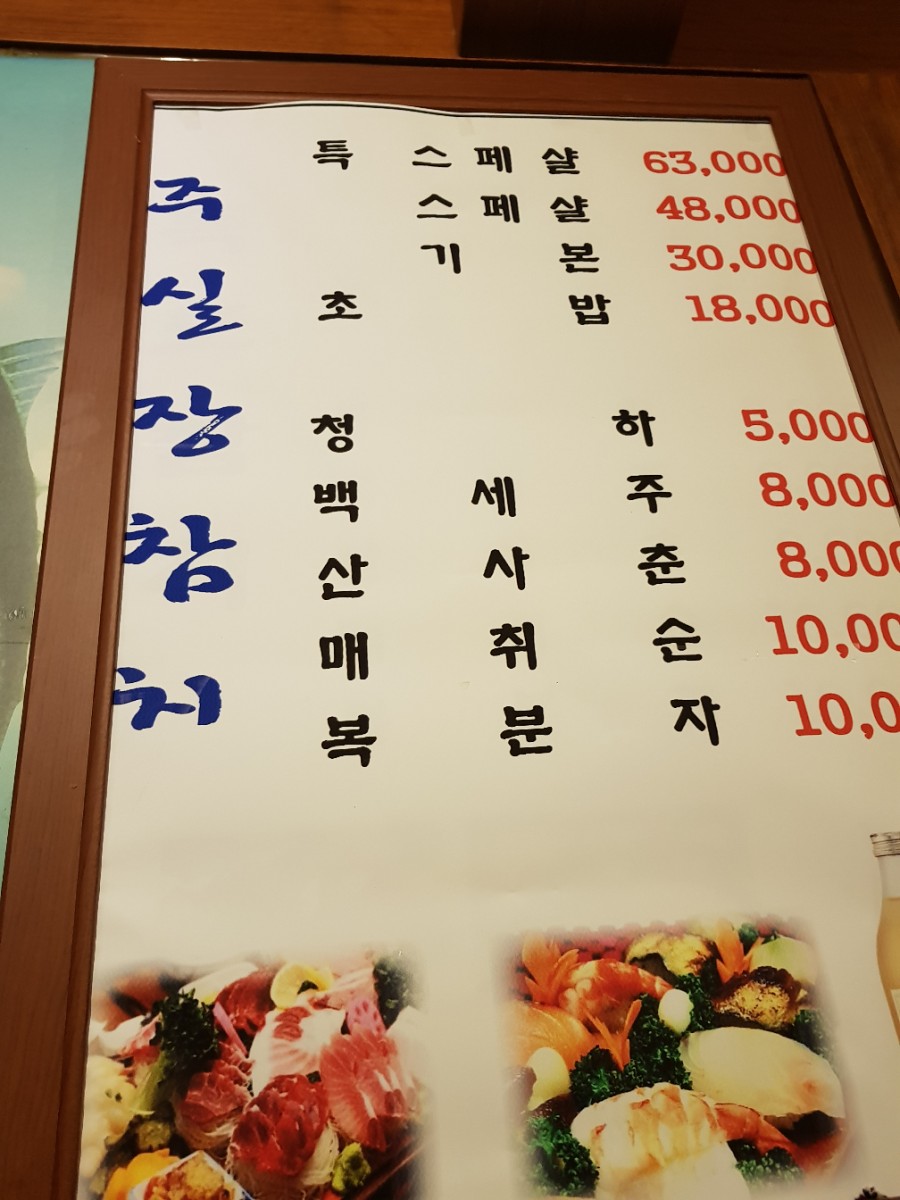 주실장참치
특 스페샬 63,000
스페샬 48,000
기본 30,000
초밥 18,000
청하 5,000
백세주 8,000
산사춘 8,000
매취순 10,00
복분자 10,0